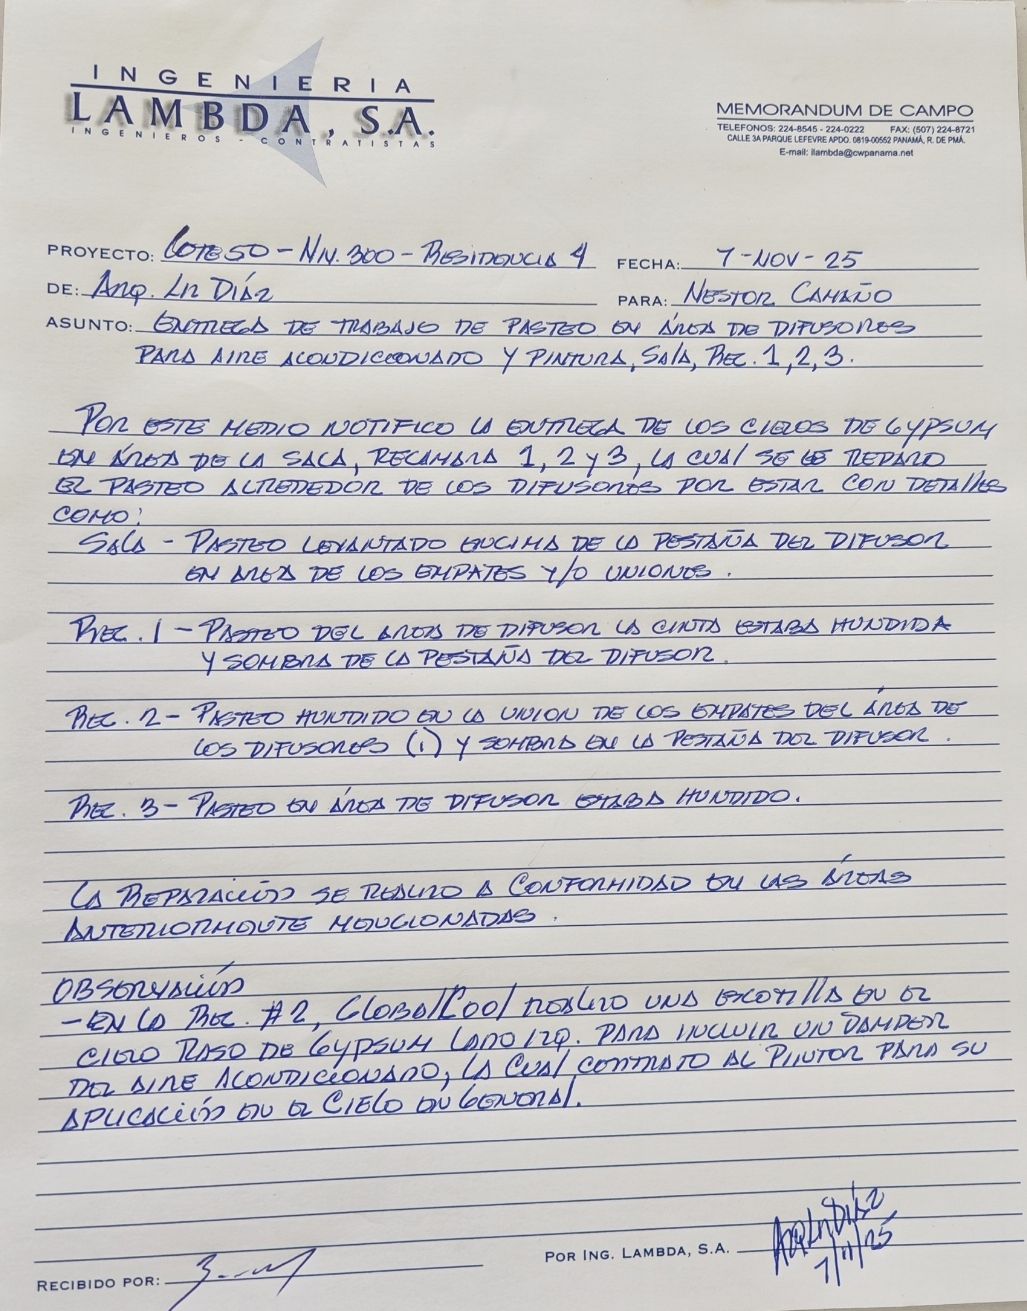 INGENIERIA
LAMBDA, S.A.
INGENIEROS - CONTRATISTAS
MEMORANDUM DE CAMPO
TELEFONOS: 224-8545 - 224-0222 FAX: (507) 224-8721
CALLE 3A PARQUE LEFEVRE APDO. 0819-00552 PANAMÁ, R. DE PMÁ.
E-mail: ilambda@cwpanama.net
PROYECTO: LOTE 50 - NN. 300 - RESIDENCIA 4 FECHA: 7-NOV-25
DE: ARQ. LN DÍAZ PARA: NESTOR CAMAÑO
ASUNTO: ENTREGA DE TRABAJO DE PASTEO EN ÁREA DE DIFUSORES
PARA AIRE ACONDICIONADO Y PINTURA, SALA, REC. 1, 2, 3.
POR ESTE MEDIO NOTIFICO LA ENTREGA DE LOS CIELOS DE GYPSUM
EN ÁREA DE LA SALA, RECAMARA 1, 2 Y 3, LA CUAL SE LE REPARO
EL PASTEO ALREDEDOR DE LOS DIFUSORES POR ESTAR CON DETALLES
COMO:
SALA - PASTEO LEVANTADO ENCIMA DE LA PESTAÑA DEL DIFUSOR
EN AREA DE LOS EMPATES Y/O UNIONES.
REC. 1 - PASTEO DEL ÁREA DE DIFUSOR LA CINTA ESTABA HUNDIDA
Y SOMBRA DE LA PESTAÑA DEL DIFUSOR.
REC. 2 - PASTEO HUNDIDO EN LA UNION DE LOS EMPATES DEL ÁREA DE
LOS DIFUSORES (1) Y SOMBRA EN LA PESTAÑA DEL DIFUSOR.
REC. 3 - PASTEO EN ÁREA DE DIFUSOR ESTABA HUNDIDO.
LA REPARACIÓN SE REALIZO A CONFORMIDAD EN LAS ÁREAS
ANTERIORMENTE MENCIONADAS.
OBSERVACIÓN
- EN LA REC. #2, GLOBAL COOL REALIZO UNA ESCOTILLA EN EL
CIELO RASO DE GYPSUM LADO IZQ. PARA INCLUIR UN DAMPER
DEL AIRE ACONDICIONADO, LA CUAL CONTRATO AL PINTOR PARA SU
APLICACIÓN EN EL CIELO EN GENERAL.
ARQ LN DÍAZ
7/11/25
POR ING. LAMBDA, S.A.
RECIBIDO POR: